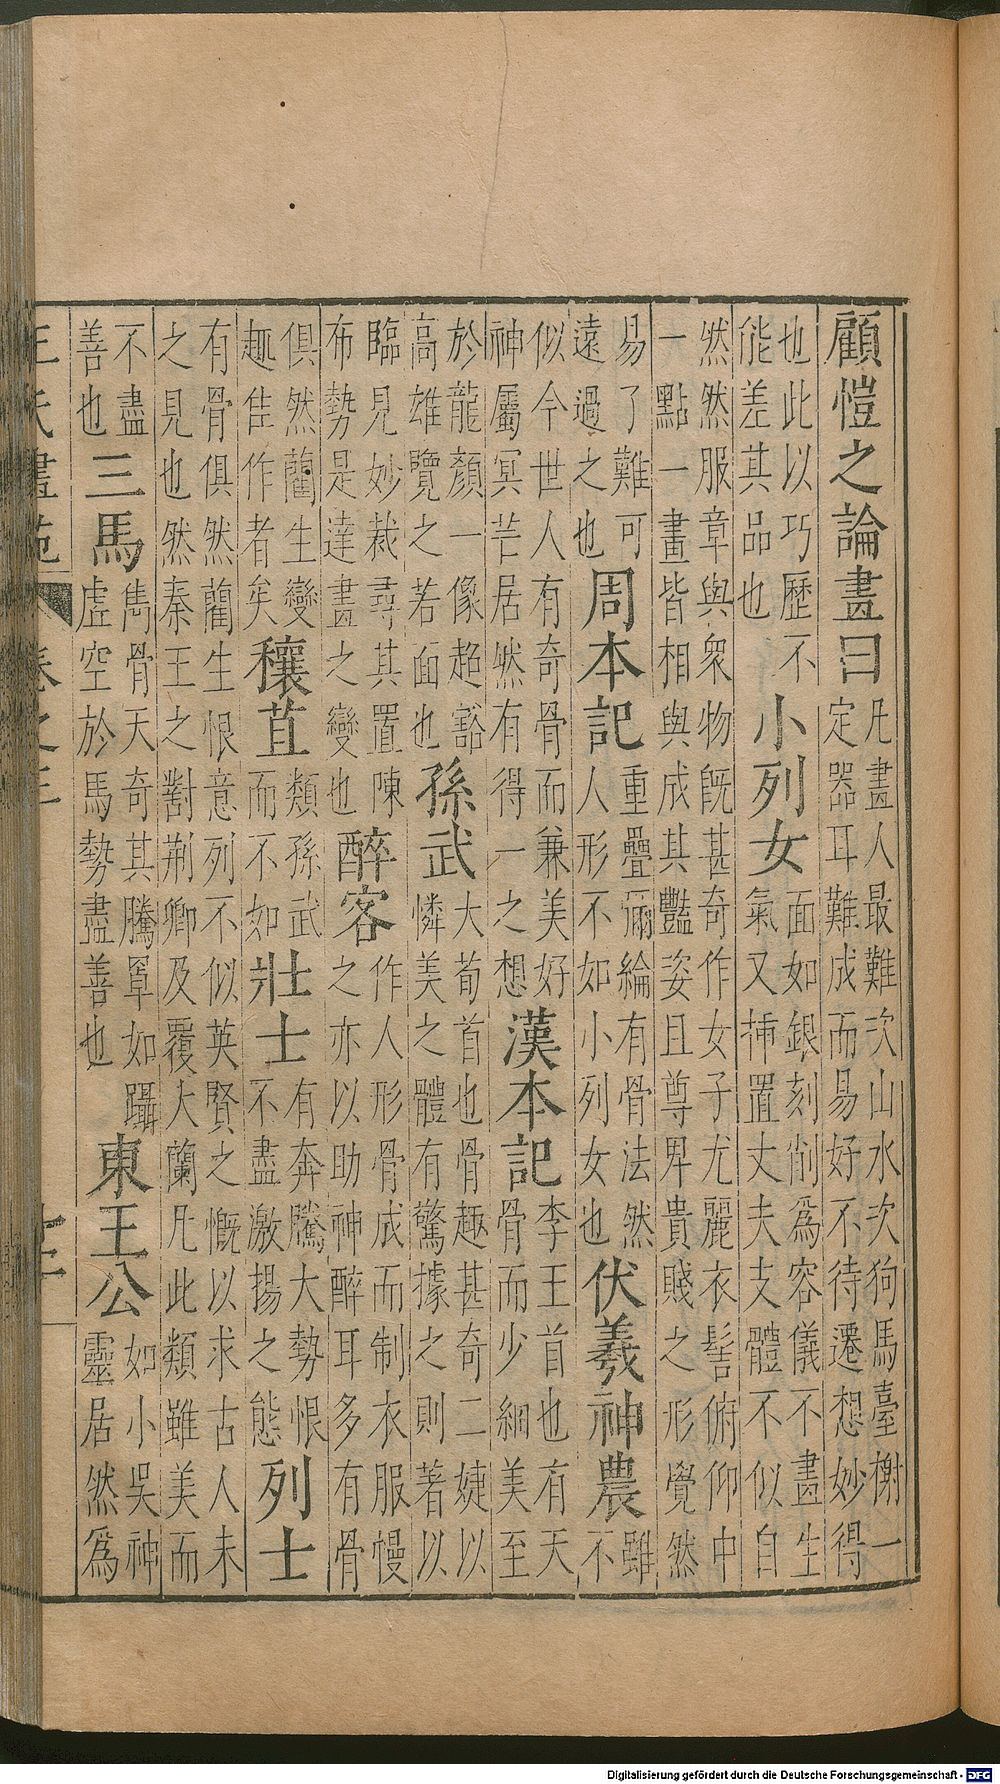 顧愷之論畫曰凡畫人最難次山水次狗馬臺榭一定器耳難成而易好不待遷想妙得
也此以巧歷不能差其品也小列女面如銀刻削為容儀不畫生氣又揷置丈夫支體不似自
然然服章與衆物既甚奇作女子尤麗衣髻俯仰中一點一畫皆相與成其豔姿且尊卑貴賤之形覺然
易了難可遠過之也周本記重疊彌綸有骨法然人形不如小列女也伏羲神農雖不
似今世人有奇骨而兼美好神屬冥芒居然有得一之想漢本記李王首也有天骨而少細美至
於龍顏一像超豁高雄覽之若面也孫武大荀首也骨趣甚奇二婕以憐美之體有驚據之則著以
臨見妙裁尋其置陳布勢是達畫之變也醉客作人形骨成而制衣服慢之亦以助神醉耳多有骨
俱然藺生變趣佳作者矣穰苴類孫武而不如壯士有奔騰大勢恨不盡激揚之態列士
有骨俱然藺生恨意列不似英賢之慨以求古人未之見也然秦王之對荊卿及覆大蘭凡此類雖美而
不盡善也三馬雋骨天奇其騰罩如躡虛空於馬勢盡善也東王公如小吳神靈居然為
王氏畫苑 卷之三
Digitalisierung gefördert durch die Deutsche Forschungsgemeinschaft - DFG